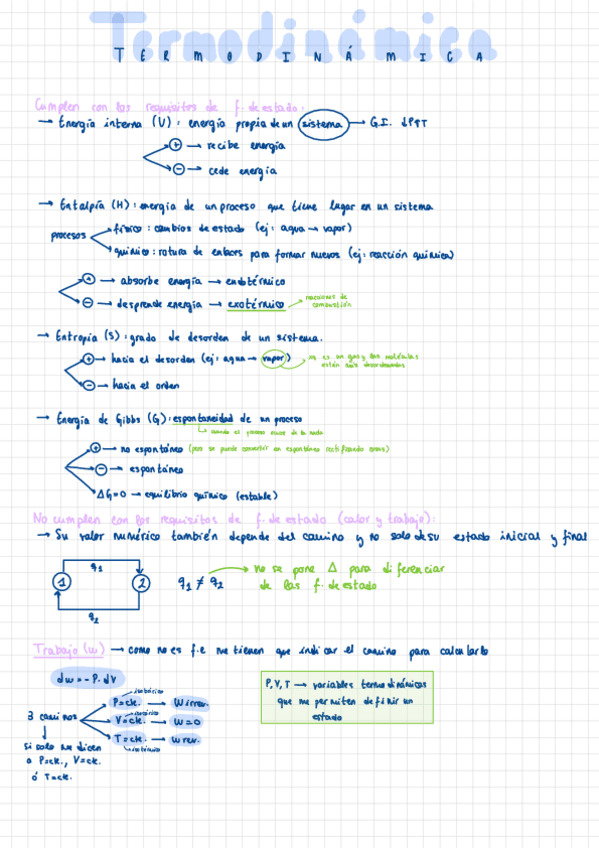 Termodinámica
TERMODINÁMICA
Cumplen con los requisitos de f. de estado:
→ Energía interna (U): energía propia de un sistema → G.I. ↓P↑T
+ → recibe energía
- → cede energía
→ Entalpía (H): energía de un proceso que tiene lugar en un sistema
procesos
físico: cambios de estado (ej: agua → vapor)
químico: rotura de enlaces para formar nuevos (ej: reacción química)
+ → absorbe energía → endotérmico
- → desprende energía → exotérmico
reacciones de
combustión
→ Entropía (S): grado de desorden de un sistema.
+ → hacia el desorden (ej: agua → vapor)
es un gas y las moléculas
están más desordenadas
- → hacia el orden
→ Energía de Gibbs (G): espontaneidad de un proceso
cuando el proceso nace de la nada
+ → no espontáneo (pero se puede convertir en espontáneo rectificando cosas)
- → espontáneo
ΔG=0 → equilibrio químico (estable)
No cumplen con los requisitos de f. de estado (calor y trabajo):
→ Su valor numérico también depende del camino y no solo de su estado inicial y final
q1
1 2
q2
q1 ≠ q2
no se pone Δ para diferenciar
de las f. de estado
Trabajo (w) → como no es f.e me tienen que indicar el camino para calcularlo
dw = - P. dV
3 caminos
isobárico
P=ctt. → W irrev.
isocórico
V=ctt. → W=0
T=ctt. → W rev.
isotérmico
si solo me dicen
a P=ctt., V=ctt.
ó T=ctt.
P, V, T → variables termodinámicas
que me permiten definir un
estado